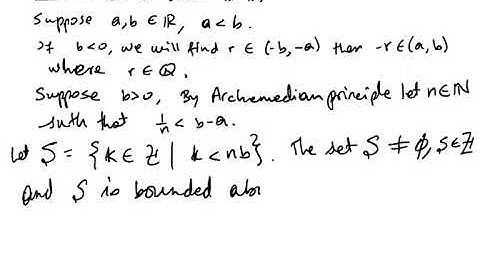 Suppose a,b ∈ ℝ, a < b.
If b<0, we will find r ∈ (-b,-a) then -r ∈ (a,b)
where r ∈ ℚ.
Suppose b>0, By Archemedian principle let n∈ℕ
suth that 1/n < b-a.
Let S = {k ∈ ℤ | k < nb}. The set S ≠ ϕ, S∈ℤ
and S is bounded abo